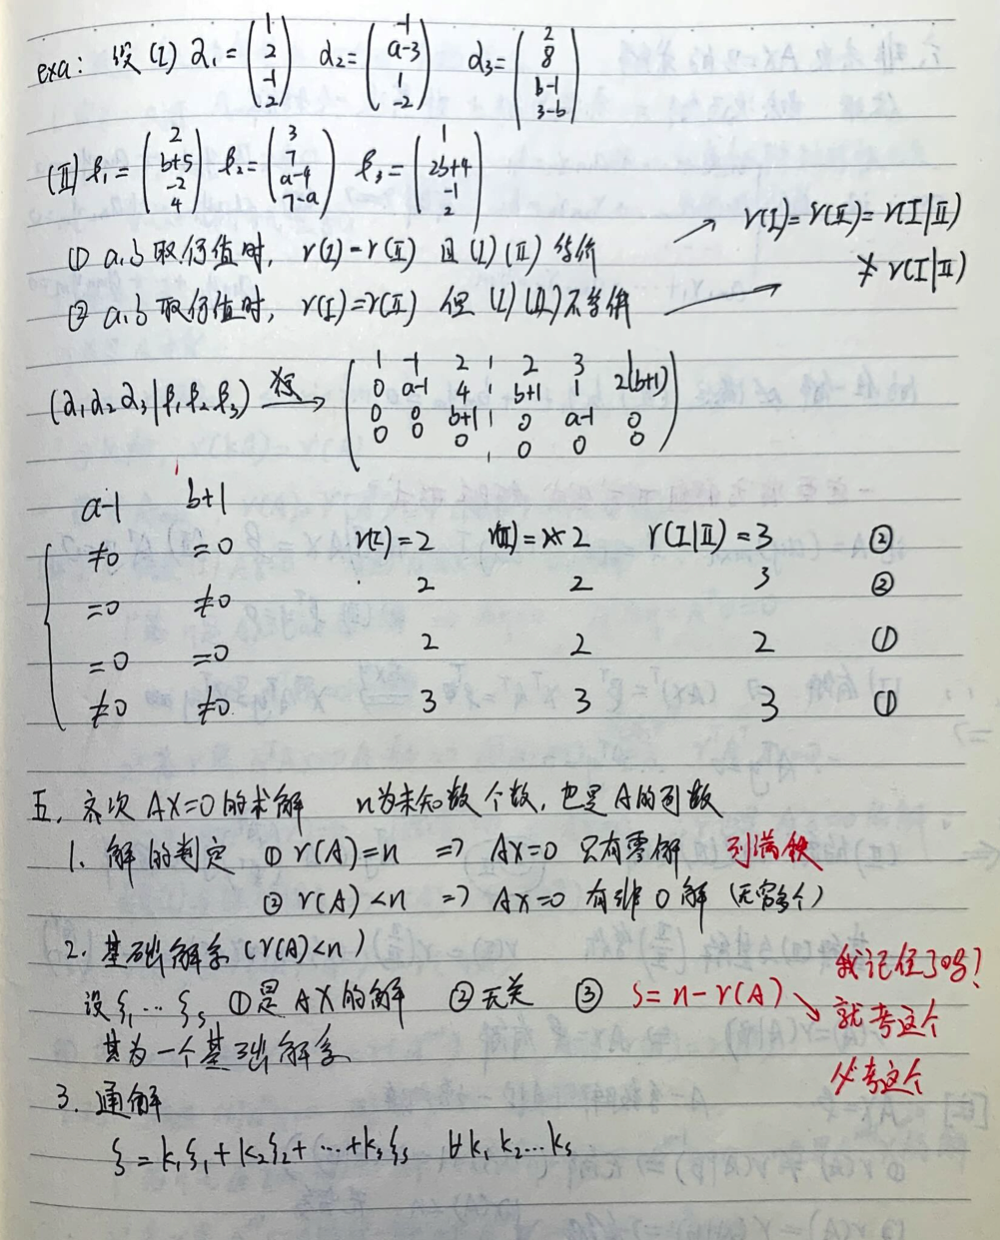 exa: 设 (I) α₁ = (1 2 -1 2) α₂ = (-1 a-3 1 -2) α₃ = (2 8 b-1 3-b)
(II) β₁ = (2 b+5 -2 4) β₂ = (3 7 a-4 7-a) β₃ = (1 2b+4 -1 2)
① a,b 取何值时, r(I)=r(II) 且 (I)(II) 等价 → r(I)=r(II)=r(I|II)
② a,b 取何值时, r(I)=r(II) 但 (I)(II)不等价 → ≠ r(I|II)
(α₁ α₂ α₃ | β₁ β₂ β₃) →
1 -1 2 | 2 3 1
0 a-1 4 | b+1 1 2(b+1)
0 0 b+1 | 0 a-1 0
0 0 0 | 0 0 0
a-1 b+1
≠0 =0 r(I)=2 r(II)=2 r(I|II)=3 ②
=0 ≠0 2 2 3 ②
=0 =0 2 2 2 ①
≠0 ≠0 3 3 3 ①
五. 齐次 AX=0 的求解 n为未知数个数, 也是A的列数
1. 解的判定 ① r(A)=n ⇒ AX=0 只有零解 列满秩
② r(A)<n ⇒ AX=0 有非0解 (无穷多个)
2. 基础解系 (r(A)<n)
设 ξ₁…ξs ①是AX的解 ②无关 ③ S=n-r(A) → 我记住了吗?
就考这个
必考这个
其为一个基础解系
3. 通解
ξ=k₁ξ₁+k₂ξ₂+…+ksξs ∀k₁k₂…ks